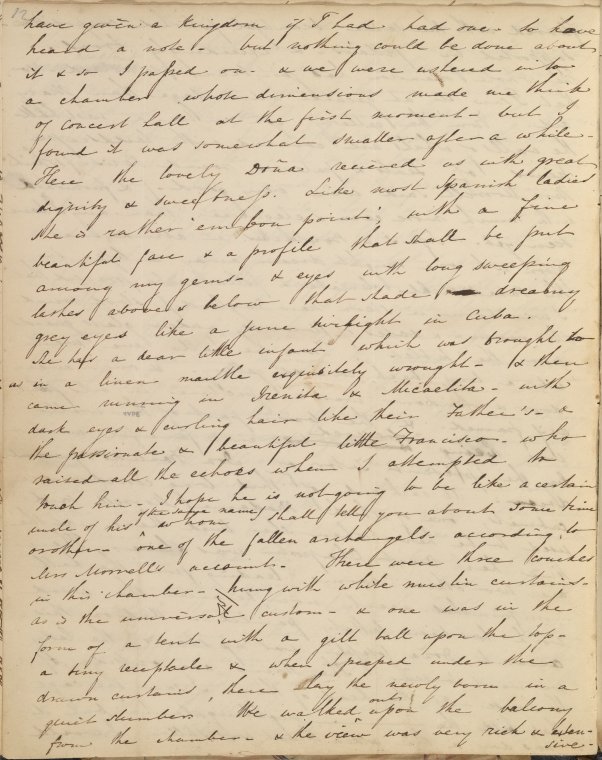 12
have given a kingdom if I had had one - to have
heard a note - but nothing could be done about
it & so I passed on - & we were ushered into
a chamber whose dimensions made me think
of concert hall at the first moment - but I
found it was somewhat smaller after a while -
Here the lovely Doña recieved us with great
dignity & sweetness. Like most Spanish ladies
she is rather 'em bon point', with a fine
beautiful face & a profile that shall be put
among my gems - & eyes with long sweeping
lashes above & below that shade dreamy
grey eyes like a June twilight in Cuba.
She has a dear little infant which was brought to
us in a linen mantle exquisitely wrought - & then
came running in Irenita & Micaelita - with
dark eyes & curling hair like their Father's - &
the passionate & beautiful little Francisco - who
raised all the echoes when I attempted to
touch him - I hope he is not going to be like a certain
uncle of his (the same name) of whom I shall tell you about some time
or other - one of the fallen archangels - according to
Mrs Morrell's account - There were three couches
in this chamber - hung with white muslin curtains -
as is the universal custom - & one was in the
form of a tent with a gilt ball upon the top -
a tiny receptacle & when I peeped under the
drawn curtains, there lay the newly born in a
quiet slumber. We walked out upon the balcony
from the chamber - & the view was very rich & exten-
sive -